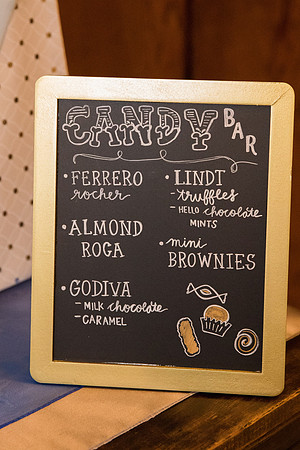 CANDY BAR
• FERRERO
rocher
• ALMOND
ROGA
• GODIVA
- MILK chocolate
- CARAMEL
• LINDT
- truffles
- HELLO chocolate
MINTS
• mini
BROWNIES